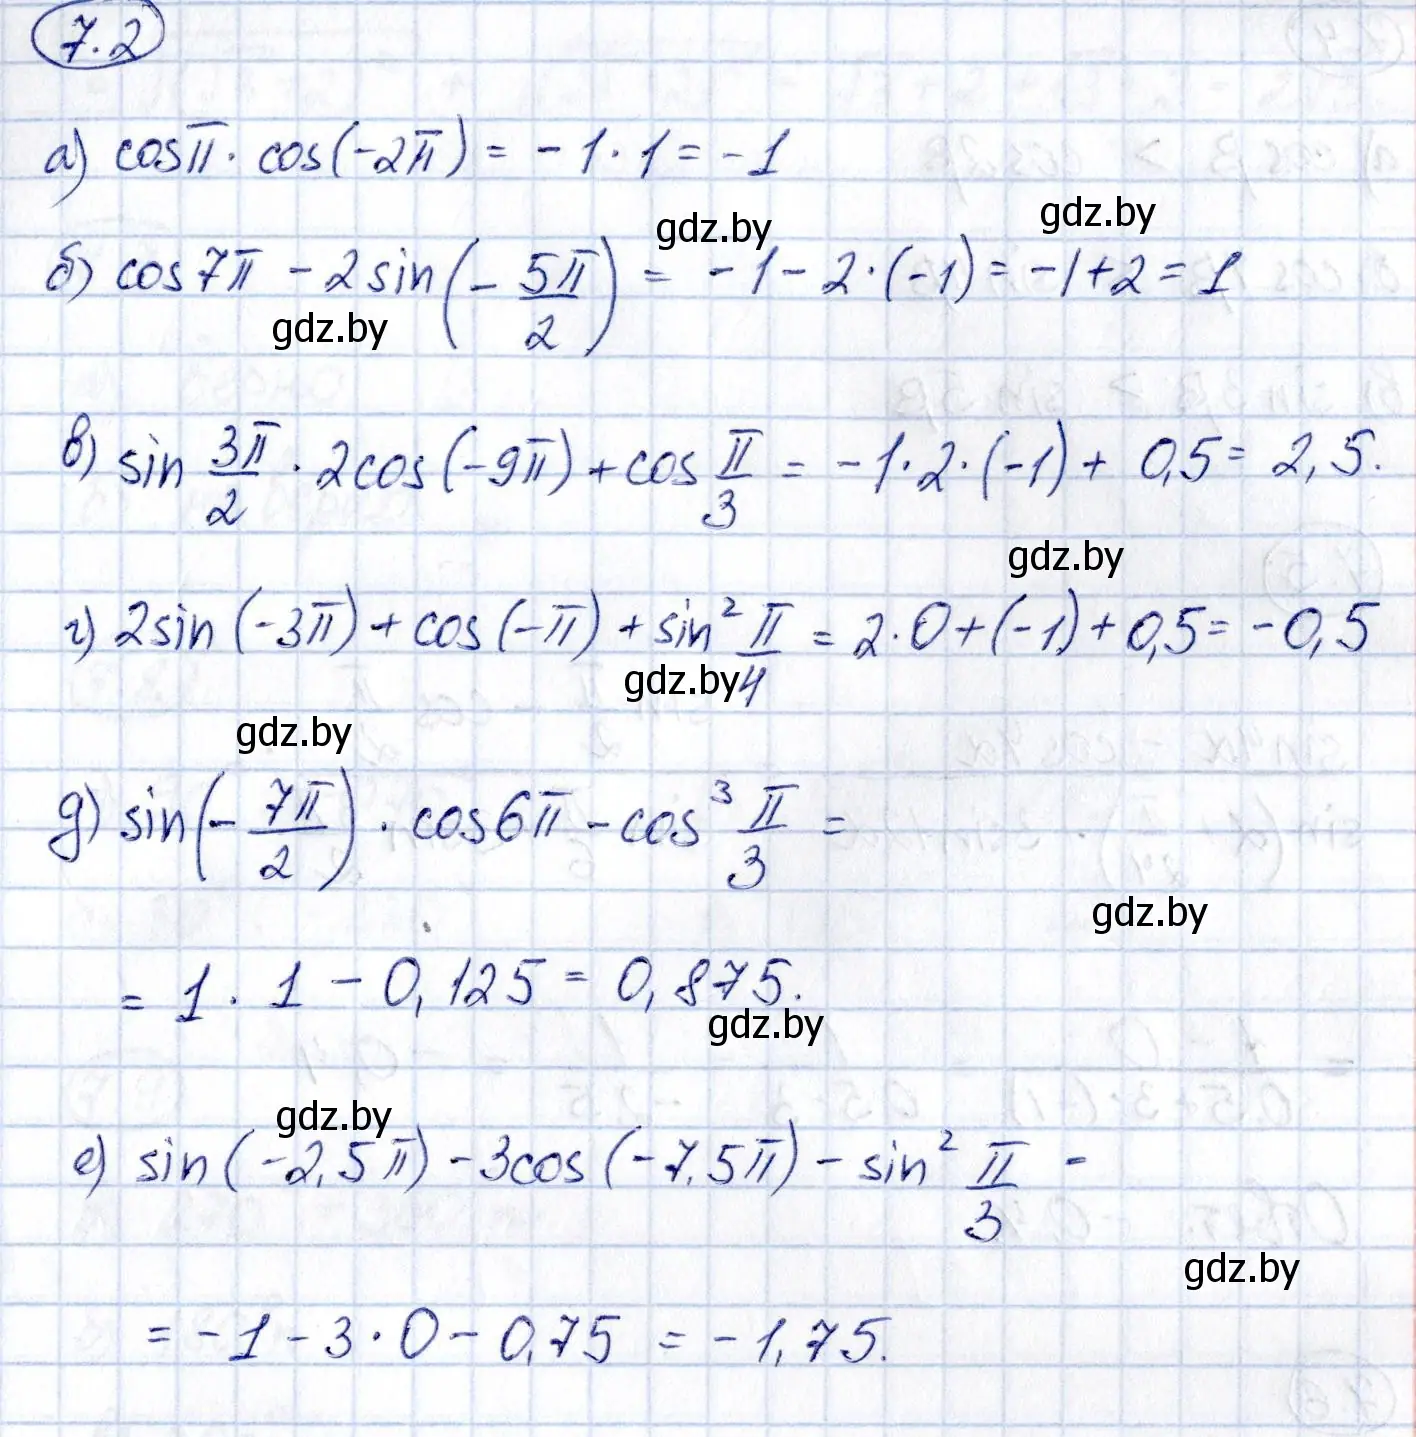 7.2
а) cosπ · cos(-2π) = -1 · 1 = -1
gdz.by gdz.by
б) cos7π - 2sin(-5π/2) = -1 - 2·(-1) = -1+2 = 1
gdz.by
в) sin 3π/2 · 2cos(-9π) + cos π/3 = -1·2·(-1) + 0,5 = 2,5.
gdz.by
г) 2sin(-3π) + cos(-π) + sin² π/4 = 2·0+(-1)+0,5 = -0,5
gdz.by
gdz.by
д) sin(-7π/2) · cos6π - cos³ π/3 =
gdz.by
= 1 · 1 - 0,125 = 0,875.
gdz.by
gdz.by
е) sin(-2,5π) - 3cos(-7,5π) - sin² π/3 -
gdz.by
= -1 - 3·0 - 0,75 = -1,75.